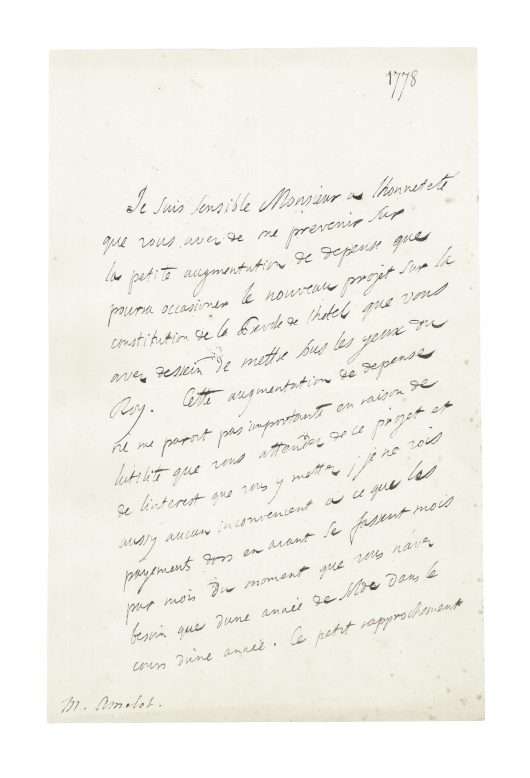 1778
Je suis sensible Monsieur a lhonneteté
que vous avez de me prevenir sur
la petite augmentation de depense que
pourra occasioner le nouveau projet sur la
constitution de la Garde de lhotel que vous
avez dessein de mettre sous les yeux du
Roy. Cette augmentation de depense
ne me paroit pas importante en raison de
lutilité que vous attendez de ce projet et
de linterest que vous y mettez, je ne vois
aussy aucun inconvenient a ce que les
payements dors en avant se fassent mois
par mois du moment que vous navez
besoin que dune année de dans le
cours dune année. Ce petit rapprochement
M. Amelot.